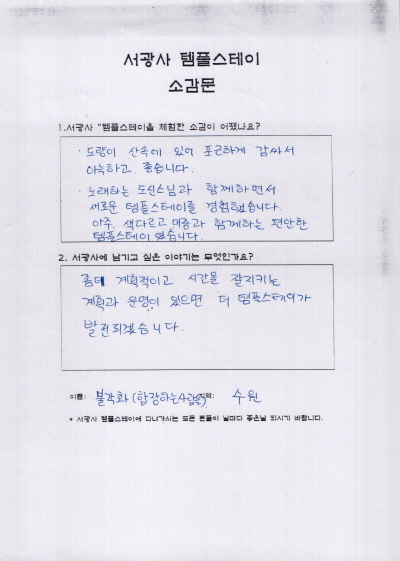 서광사 템플스테이
소감문
1.서광사 "템플스테이을 체험한 소감이 어땠나요?
· 도량이 산속에 있어 포근하게 감싸서
아늑하고 좋습니다.
· 노래하는 도신스님과 함께하면서
새로운 템플스테이를 경험했습니다.
아주 색다르고 대중과 함께하는 편안한
템플스테이 였습니다.
2. 서광사에 남기고 싶은 이야기는 무엇인가요?
좀더 계획적이고 시간을 잘지키는
계획과 운영이 있으면 더 템플스테이가
발전되겠습니다.
이름: 불각화 (합장하는사람들) 지역: 수원
* 서광사 템플스테이에 다녀가시는 모든 분들이 날마다 좋은날 되시기 바랍니다.